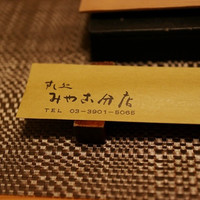 すし
みやこ分店
TEL 03-3901-5065